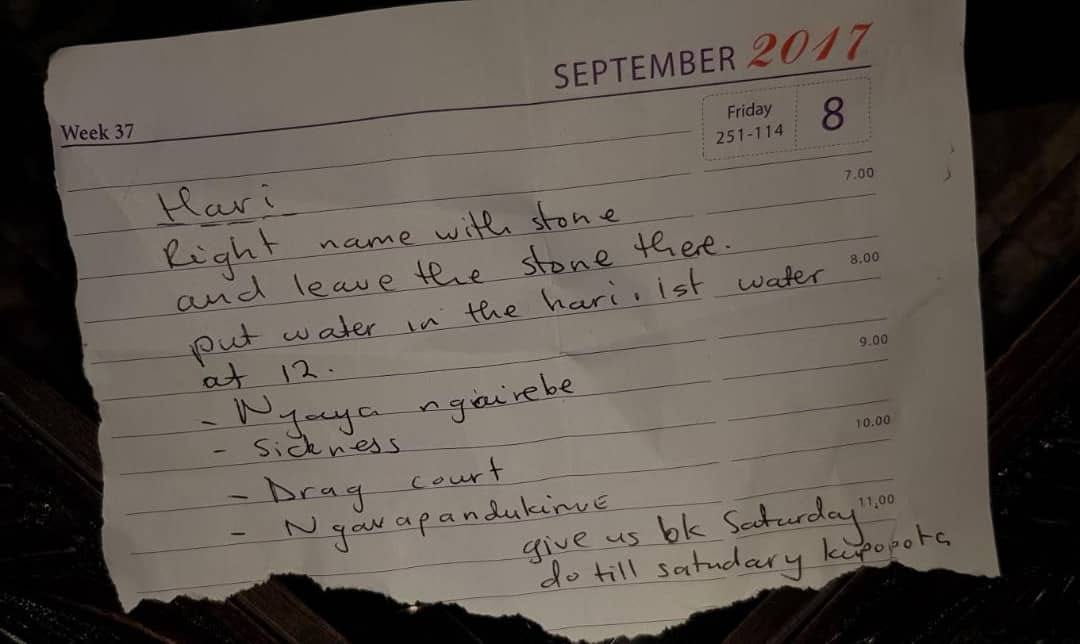 SEPTEMBER 2017
Week 37
Friday
251-114
8
7.00
Hari
Right name with stone
and leave the stone there.
8.00
put water in the hari. ist water
at 12.
9.00
- Nyaya ngairebe
- Sickness
10.00
- Drag court
- Ngavapandukinue
11.00
give us bk Saturday
do till satudary kupopota